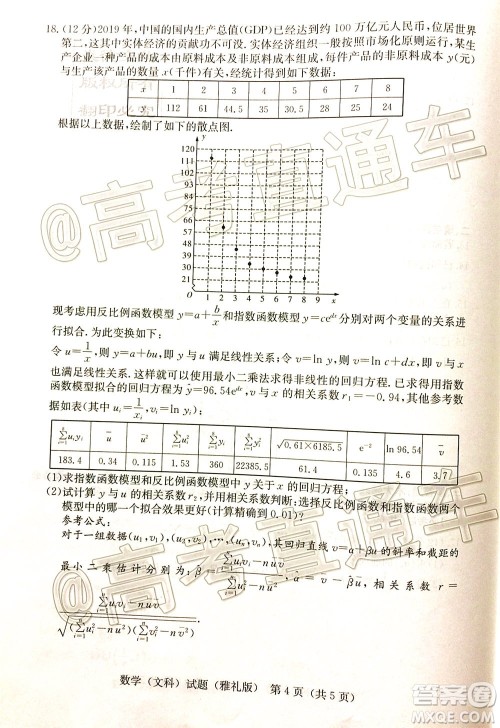 18.(12分)2019年,中国的国内生产总值(GDP)已经达到约100万亿元人民币,位居世界
第二,这其中实体经济的贡献功不可没.实体经济组织一般按照市场化原则运行,某生
产企业一种产品的成本由原料成本及非原料成本组成,每件产品的非原料成本y(元)
与生产该产品的数量x(千件)有关,经统计得到如下数据:
x 1 2 3 4 5 6 7 8
y 112 61 44.5 35 30.5 28 25 24
根据以上数据,绘制了如下的散点图.
y
120
111
102
93
84
75
66
57
48
39
30
21
0 1 2 3 4 5 6 7 8 9 x
现考虑用反比例函数模型 y=a+b/x 和指数函数模型 y=ce^{dx} 分别对两个变量的关系进
行拟合.为此变换如下:
令 u=1/x,则 y=a+bu,即 y 与 u 满足线性关系;令 v=ln y,则 v=ln c+dx,即 v 与 x
也满足线性关系.这样就可以使用最小二乘法求得非线性的回归方程.已求得用指数函
数模型拟合的回归方程为 y=96.54e^{dx},v 与 x 的相关系数 r₁=-0.94,其他参考数
据如表(其中 uᵢ=1/xᵢ,vᵢ=ln yᵢ):
∑uᵢyᵢ ū ū² ∑uᵢ² ∑yᵢ ∑yᵢ² √0.61×6185.5 e⁻² ln 96.54 v̄
183.4 0.34 0.115 1.53 360 22385.5 61.4 0.135 4.6 3.7
(1)求指数函数模型和反比例函数模型中 y 关于 x 的回归方程;
(2)试计算 y 与 u 的相关系数 r₂,并用相关系数判断:选择反比例函数和指数函数两个
模型中的哪一个拟合效果更好(计算精确到0.01)?
参考公式:
对于一组数据(u₁,v₁),(u₂,v₂),…,(uₙ,vₙ),其回归直线 v=α+βu 的斜率和截距的
最小二乘估计分别为: β=(∑uᵢvᵢ-nūv̄)/(∑uᵢ²-nū²),α=v̄-βū,相关系数 r=
(∑uᵢvᵢ-nūv̄)/√((∑uᵢ²-nū²)(∑vᵢ²-nv̄²)).
数学(文科)试题(雅礼版) 第4页(共5页)
@高考直通车
@高考直通车